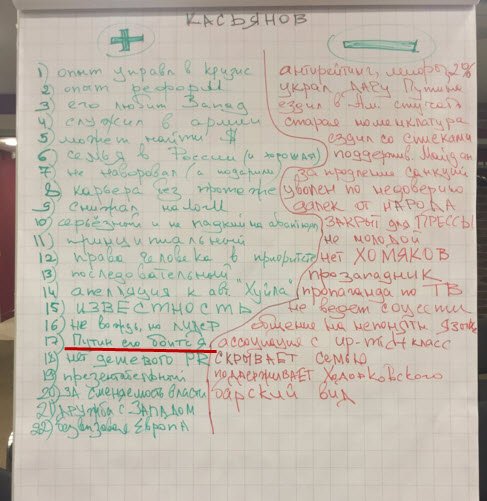 КАСЬЯНОВ
+ —
1) опыт управл в кризис
2) опыт реформ
3) его любит Запад
4) служил в армии
5) может найти $
6) семья в России (и хорошая)
7) не наворовал (а подарили)
8) карьера без протеже
9) снижал налоги
10) серьёзный и не падкий на
11) принципиальный
12) права человека в приоритете
13) последовательный
14) апелляция к авт. "Хуйла"
15) ИЗВЕСТНОСТЬ
16) не вождь, но лидер
17) Путин его боится
18) нет дешевого PR
19) презентабельный
20) ЗА сменяемость власти
21) ДРУЖБА С ЗАПАДОМ
22) безвизовая Европа
антирейтинг, мемы, 2%
украл ДАЧУ Путина
ездил в Ам. стучать
старая номенклатура
ездил со списками
поддержив. Майдан
за продление санкций
уволен по недоверию
далек от НАРОДА
ЗАКРЫТ для ПРЕССЫ
не молодой
нет ХОМЯКОВ
прозападник
пропаганда по ТВ
не ведет соцсети
общение на непонятн. языке
ассоциация с ир-тью + класс
СКРЫВАЕТ СЕМЬЮ
поддерживает Ходорковского
барский вид